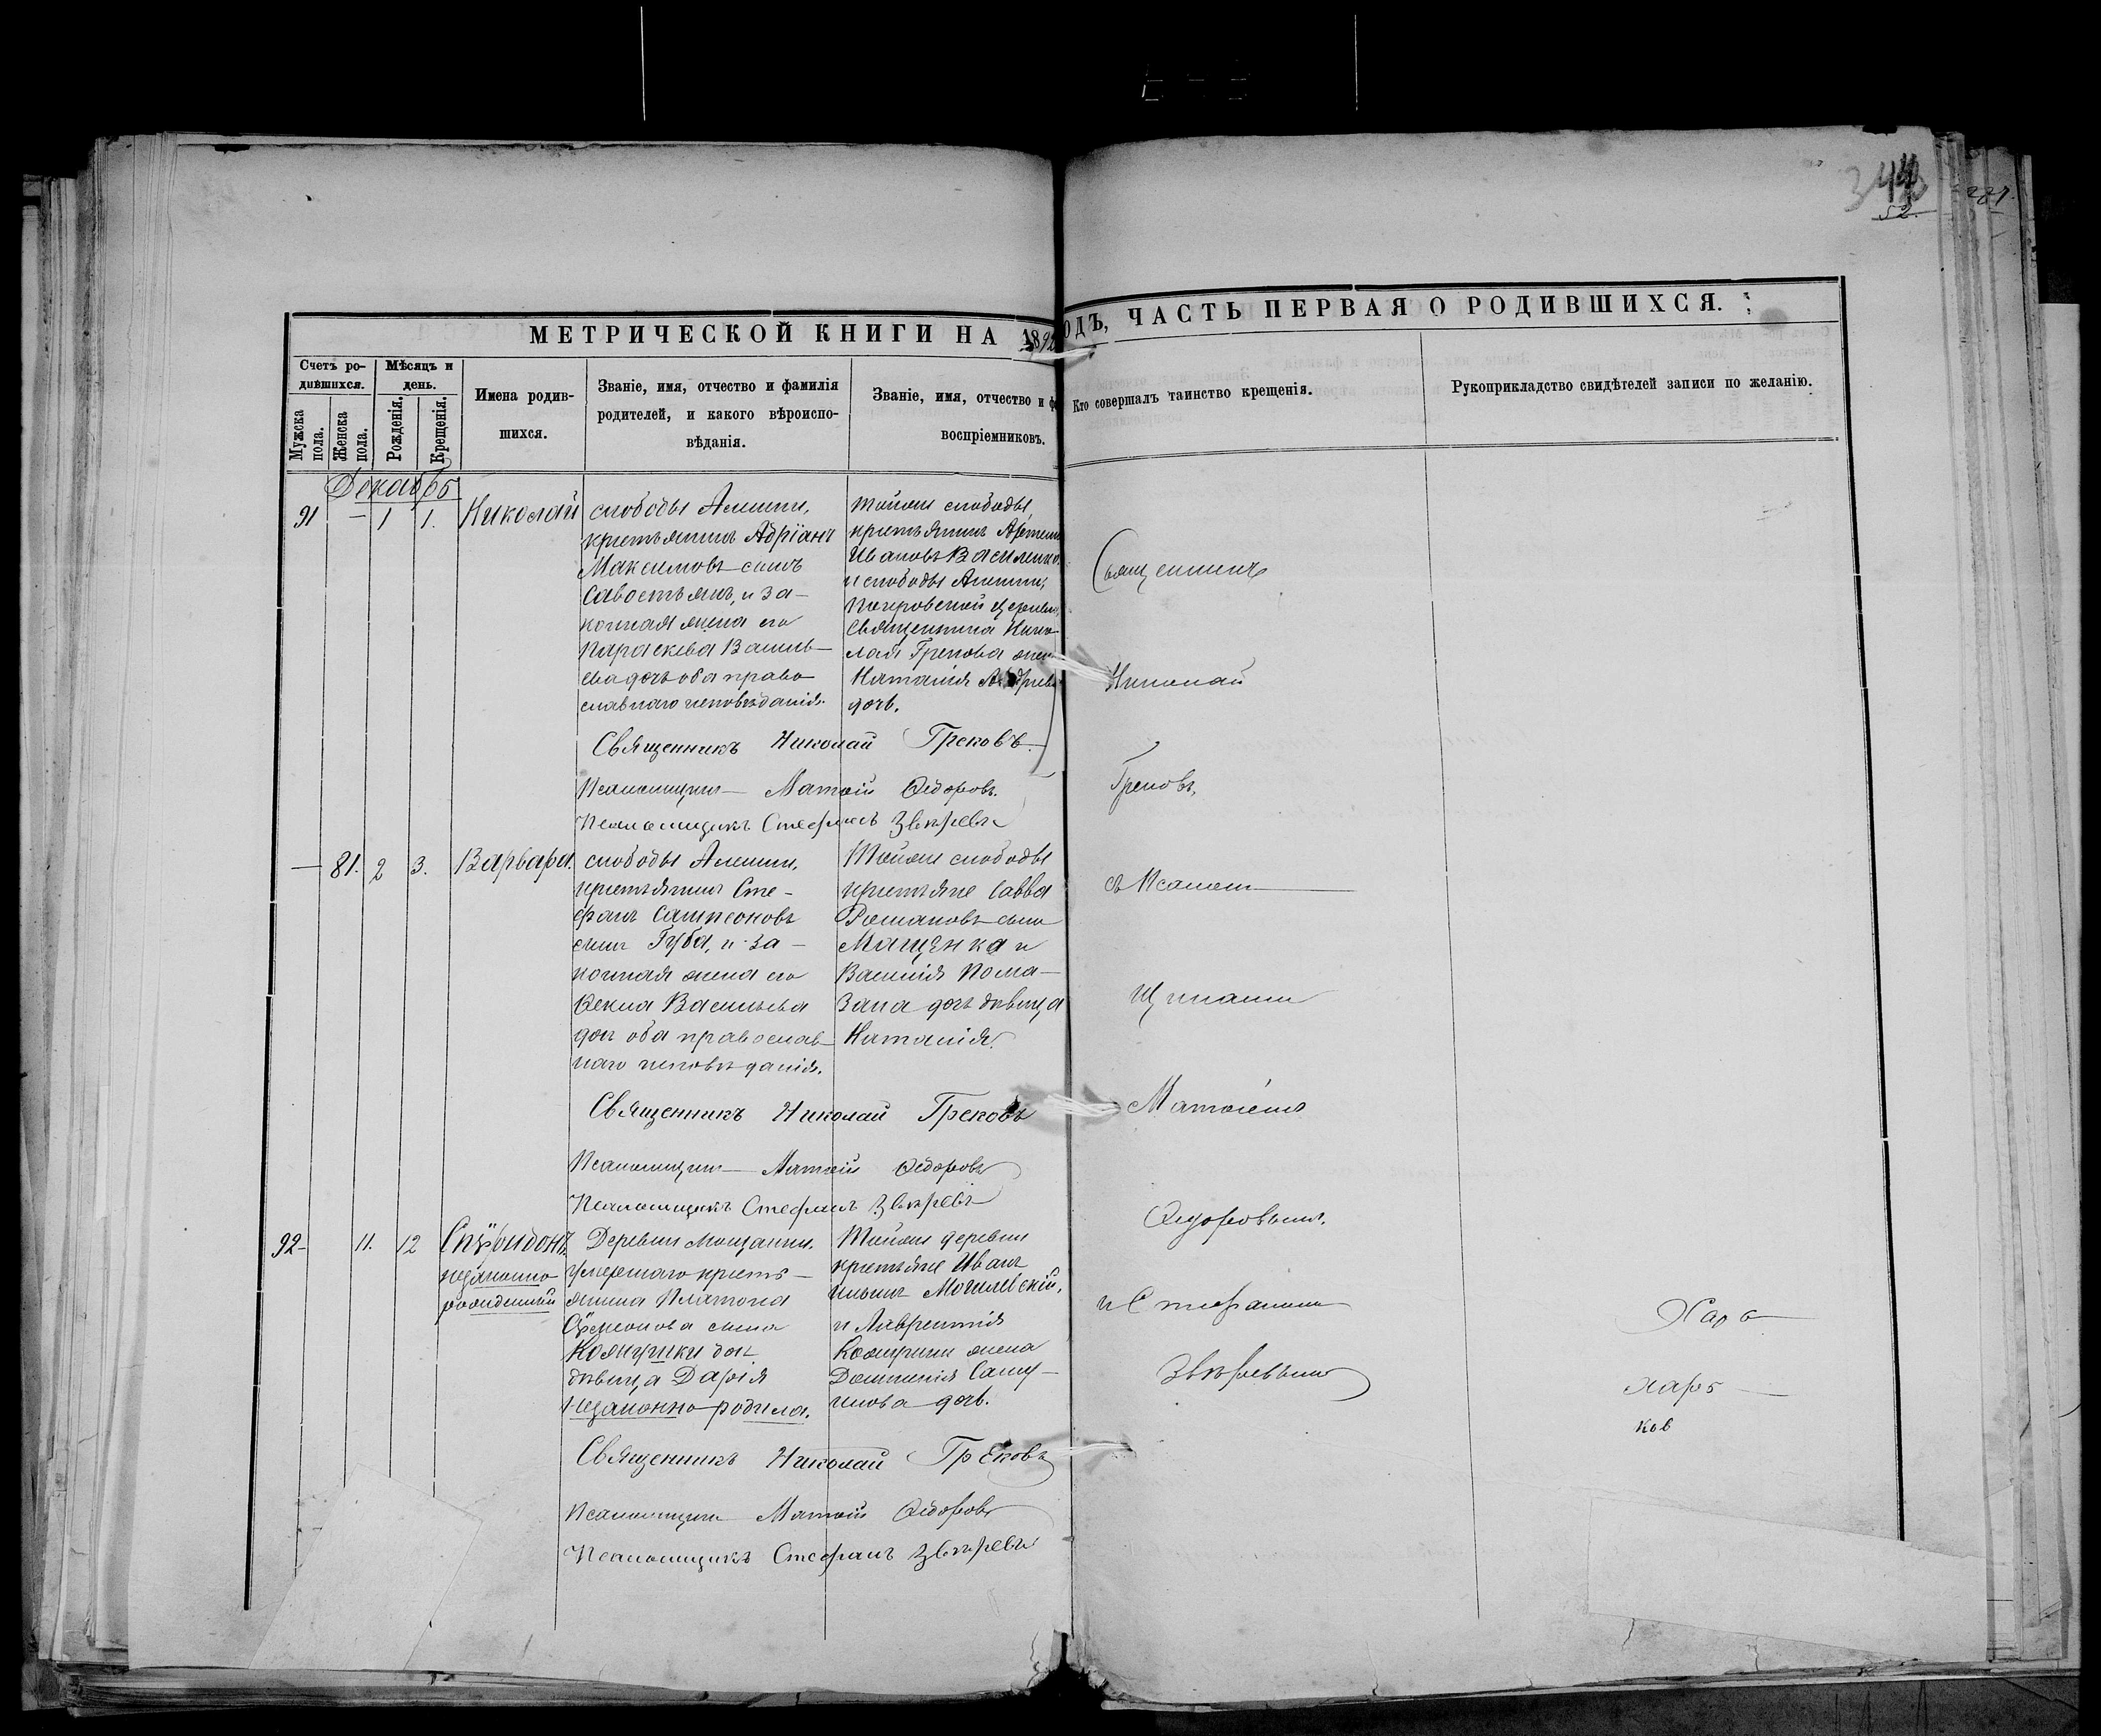 344
52.
МЕТРИЧЕСКОЙ КНИГИ НА 1892
ОДЪ, ЧАСТЬ ПЕРВАЯ О РОДИВШИХСЯ.
Счетъ ро-
дившихся.
Мѣсяцъ и
день.
Мужска
пола.
Женска
пола.
Рожденія.
Крещенія.
Имена родив-
шихся.
Званіе, имя, отчество и фамилія
родителей, и какого вѣроиспо-
вѣданія.
Званіе, имя, отчество и ф
воспріемниковъ.
Кто совершалъ таинство крещенія.
Рукоприкладство свидѣтелей записи по желанію.
Декабрь
91 — 1 1. Николай
слободы
крестьянинъ Адріанъ
Максимовъ сынъ
Савостьянъ, и за-
конная жена его
Параскева Василь-
ева дочь оба право-
славнаго исповѣданія.
тойже слободы,
крестьянинъ Артемій
Ивановъ Василенко
и слободы
Покровской церкви,
Священника Нико-
лая Грекова жена
Наталія Андреева
дочь.
Священникъ Николай Грековъ
Псаломщикъ Матѳій Ѳедоровъ.
Псаломщикъ Стефанъ Звѣревъ
— 81. 2 3. Варвара.
слободы
крестьянинъ Сте-
фанъ Сампсоновъ
сынъ Губа, и за-
конная жена его
Ѳекла Васильева
дочь оба православ-
наго исповѣданія.
Тойже слободы
крестьяне Савва
Романовъ сынъ
Мащенка и
Василія Пома-
зана дочь дѣвица
Наталія.
Священникъ Николай Грековъ
Псаломщикъ Матѳій Ѳедоровъ
Псаломщикъ Стефанъ Звѣревъ
92- 11. 12 Спѵридонъ.
незаконно-
рожденный
Деревни
умершаго кресть-
янина Платона
Сѵмеонова сына
дочь
дѣвица Дарія
незаконно родила.
Тойже деревни
крестьяне Иванъ
Ильинъ Могилевскій,
и Лаврентія
жена
дочь.
Священникъ Николай Грековъ
Псаломщикъ Матѳій Ѳедоровъ
Псаломщикъ Стефанъ Звѣревъ
Священникъ
Николай
Грековъ,
съ Псалом-
щиками
Матѳіемъ
Ѳедоровымъ.
и Стефаномъ
Звѣревымъ
Харь
Харь
ков